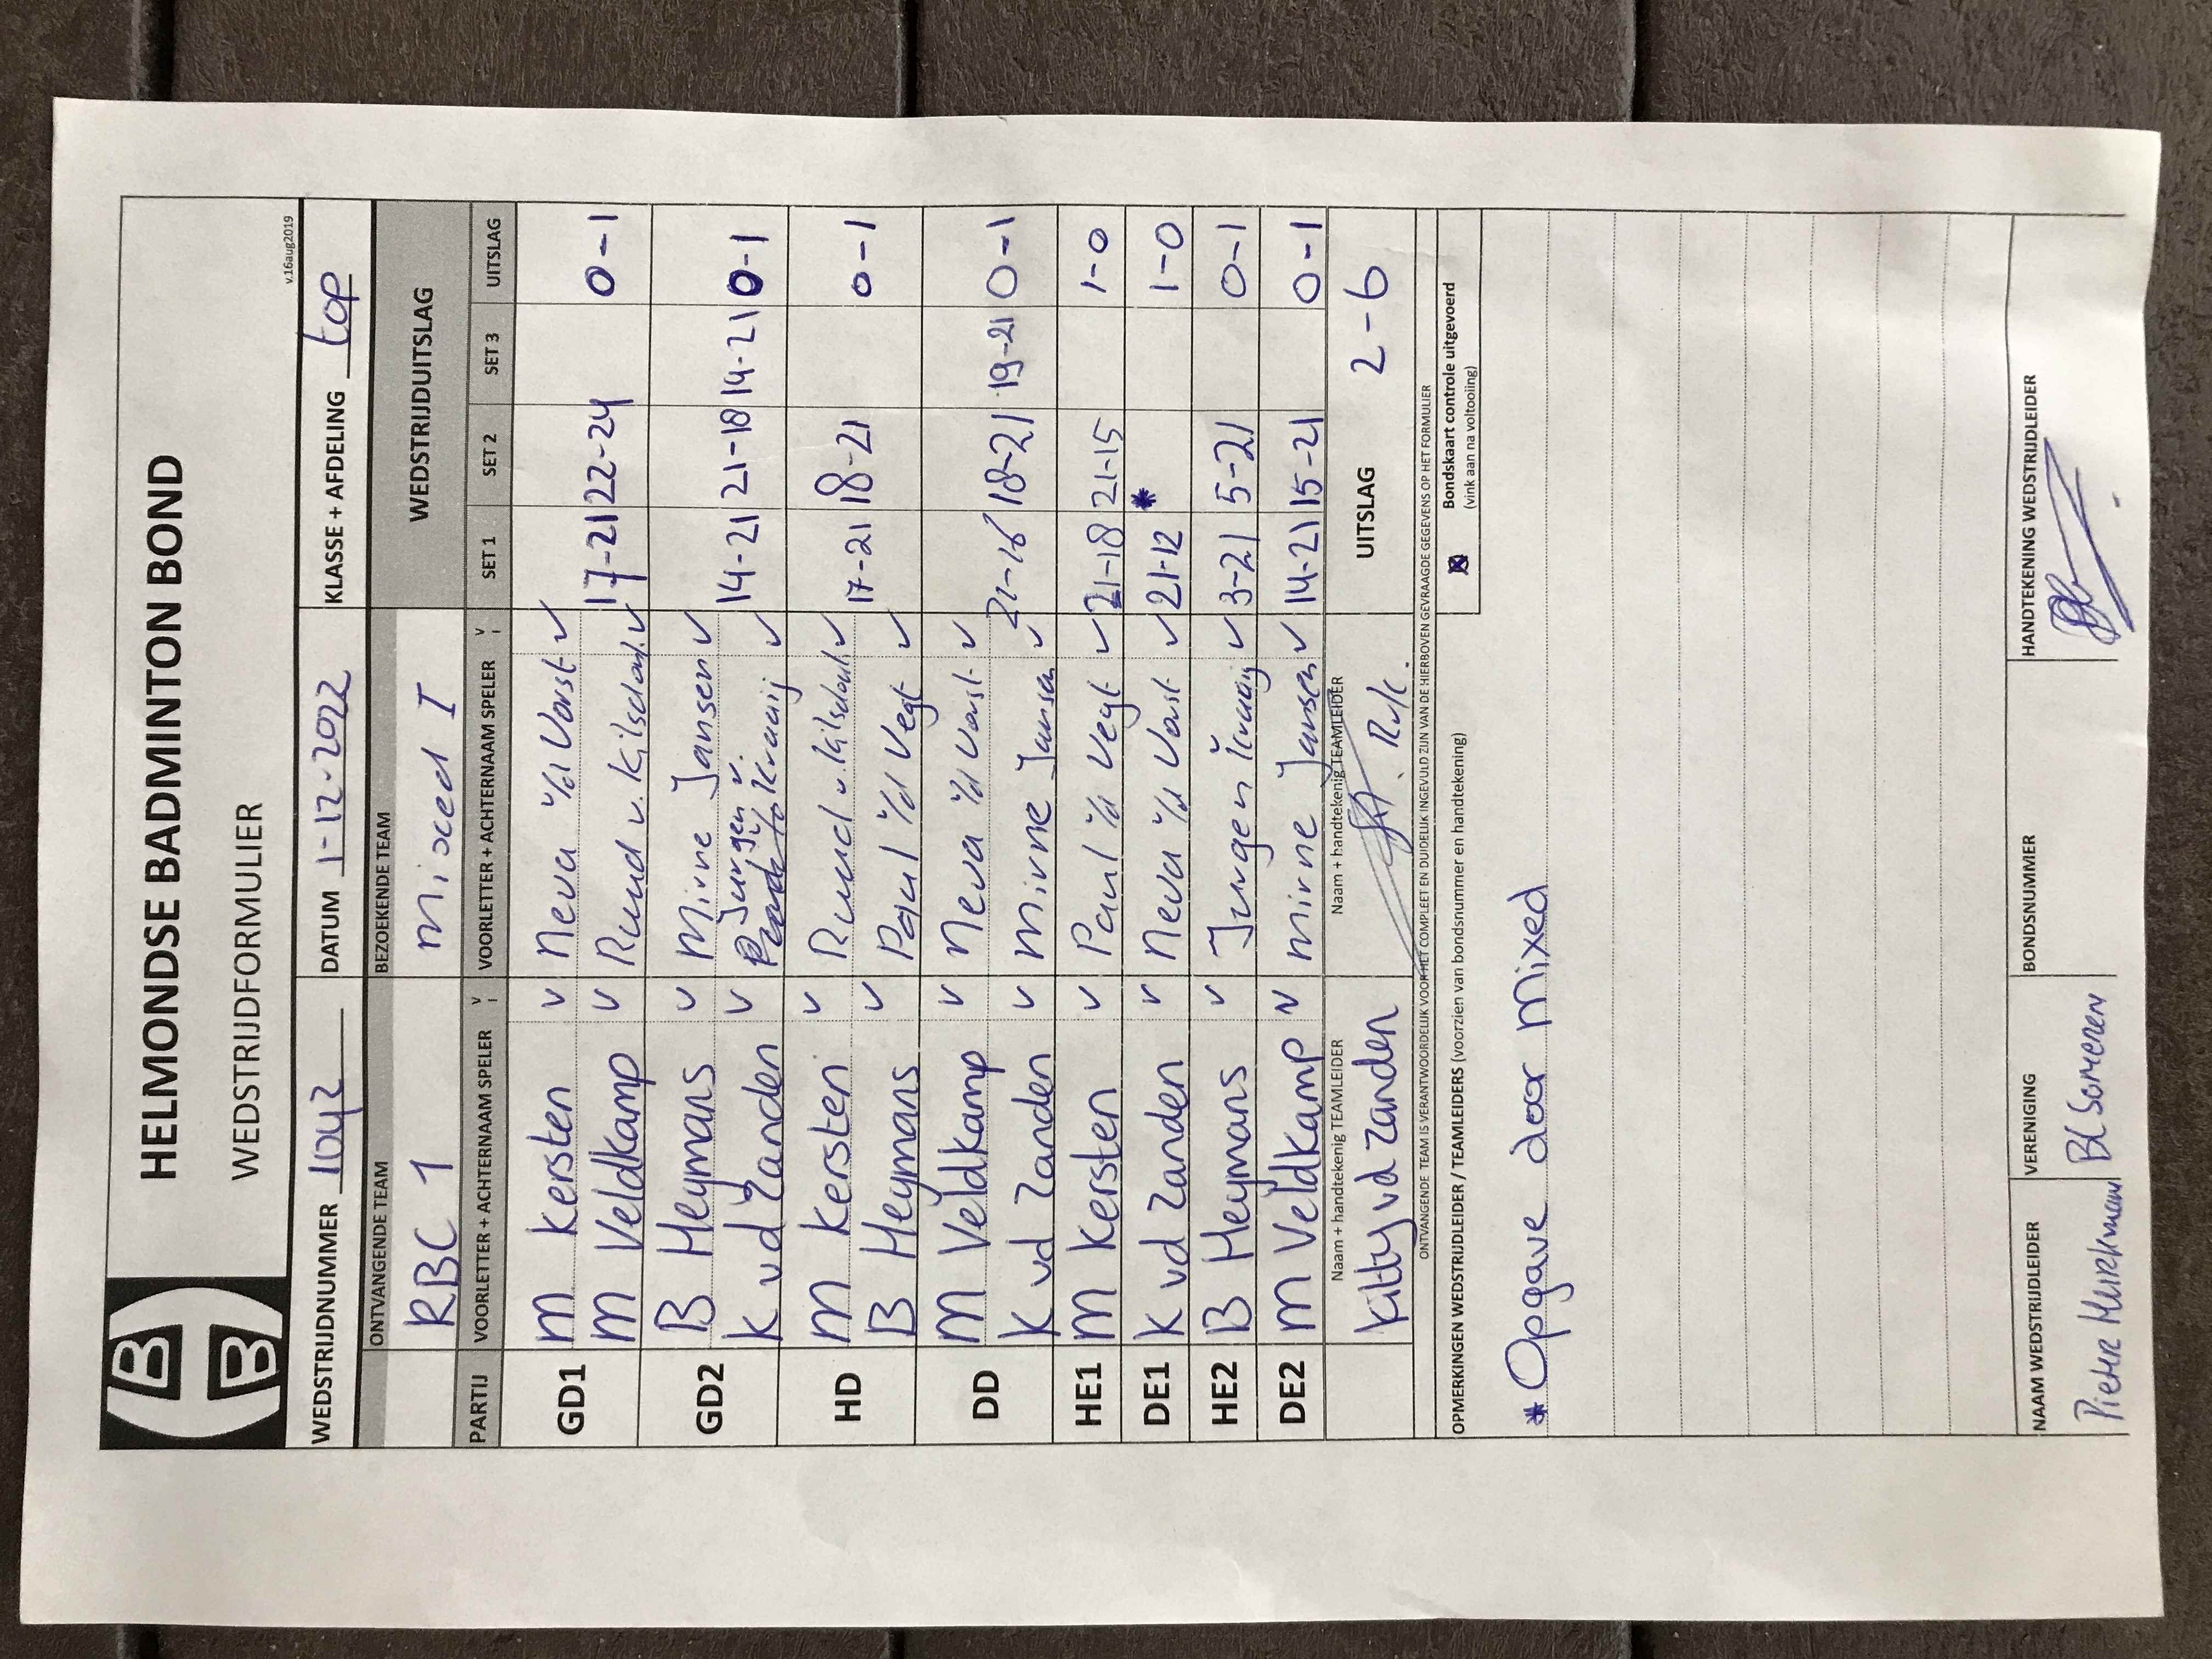 HELMONDSE BADMINTON BOND
WEDSTRIJDFORMULIER
v.16aug2019
WEDSTRIJDNUMMER 1042 DATUM 1-12-2022 KLASSE + AFDELING top
ONTVANGENDE TEAM BEZOEKENDE TEAM WEDSTRIJDUITSLAG
RBC 1 mixed I
PARTIJ VOORLETTER + ACHTERNAAM SPELER V VOORLETTER + ACHTERNAAM SPELER V SET 1 SET 2 SET 3 UITSLAG
GD1 M Kersten v Neva v/d Vorst v
M Veldkamp v Ruud v. Kilsdonk v 17-21 22-24 0-1
GD2 B Heymans v Mirne Jansen v
K vd Zanden v Jurgen v. Kraaij v 14-21 21-18 14-21 0-1
HD M Kersten v Ruud v. Kilsdonk v
B Heymans v Paul v/d Vegt v 17-21 18-21 0-1
DD M Veldkamp v Neva v/d Vorst v
K vd Zanden v Mirne Jansen v 21-16 18-21 19-21 0-1
HE1 M Kersten v Paul v/d Vegt v 21-18 21-15 1-0
DE1 K vd Zanden v Neva v/d Vorst v 21-12 * 1-0
HE2 B Heymans v Jurgen Kraaij v 3-21 5-21 0-1
DE2 M Veldkamp v Mirne Jansen v 14-21 15-21 0-1
Naam + handtekenig TEAMLEIDER Naam + handtekenig TEAMLEIDER
Kitty vd Zanden UITSLAG 2-6
ONTVANGENDE TEAM IS VERANTWOORDELIJK VOOR HET COMPLEET EN DUIDELIJK INGEVULD ZIJN VAN DE HIERBOVEN GEVRAAGDE GEGEVENS OP HET FORMULIER
OPMERKINGEN WEDSTRIJDLEIDER / TEAMLEIDERS (voorzien van bondsnummer en handtekening)
Bondskaart controle uitgevoerd
(vink aan na voltooiing)
* Opgave door mixed
NAAM WEDSTRIJDLEIDER VERENIGING BONDSNUMMER HANDTEKENING WEDSTRIJDLEIDER
BC Someren